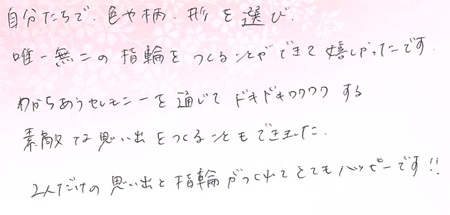 自分たちで、色や柄、形を選び、
唯一無二の指輪をつくることができて嬉しかったです。
わかちあうセレモニーを通じてドキドキワクワクする
素敵な思い出をつくることもできました。
2人だけの思い出と指輪がつくれてとてもハッピーです!!